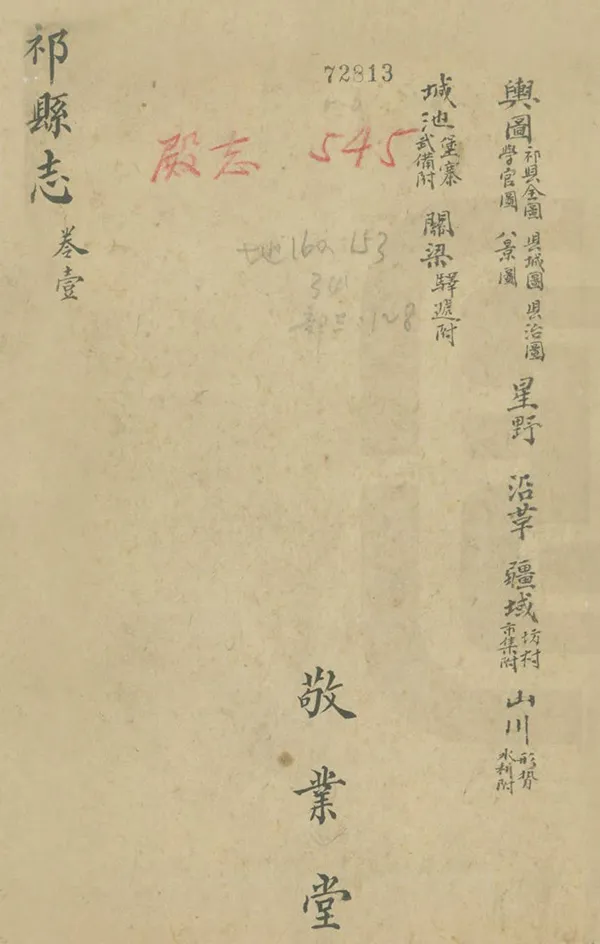 輿圖 祁縣全圖 縣城圖 縣治圖 學官圖 八景圖 星野 沿革 疆域 坊村市集附 山川 形勢水利附
城池 堡寨武備附 關梁 驛遞附
72813
殿志 545
160 153
34
128
敬業堂
祁縣志 卷壹